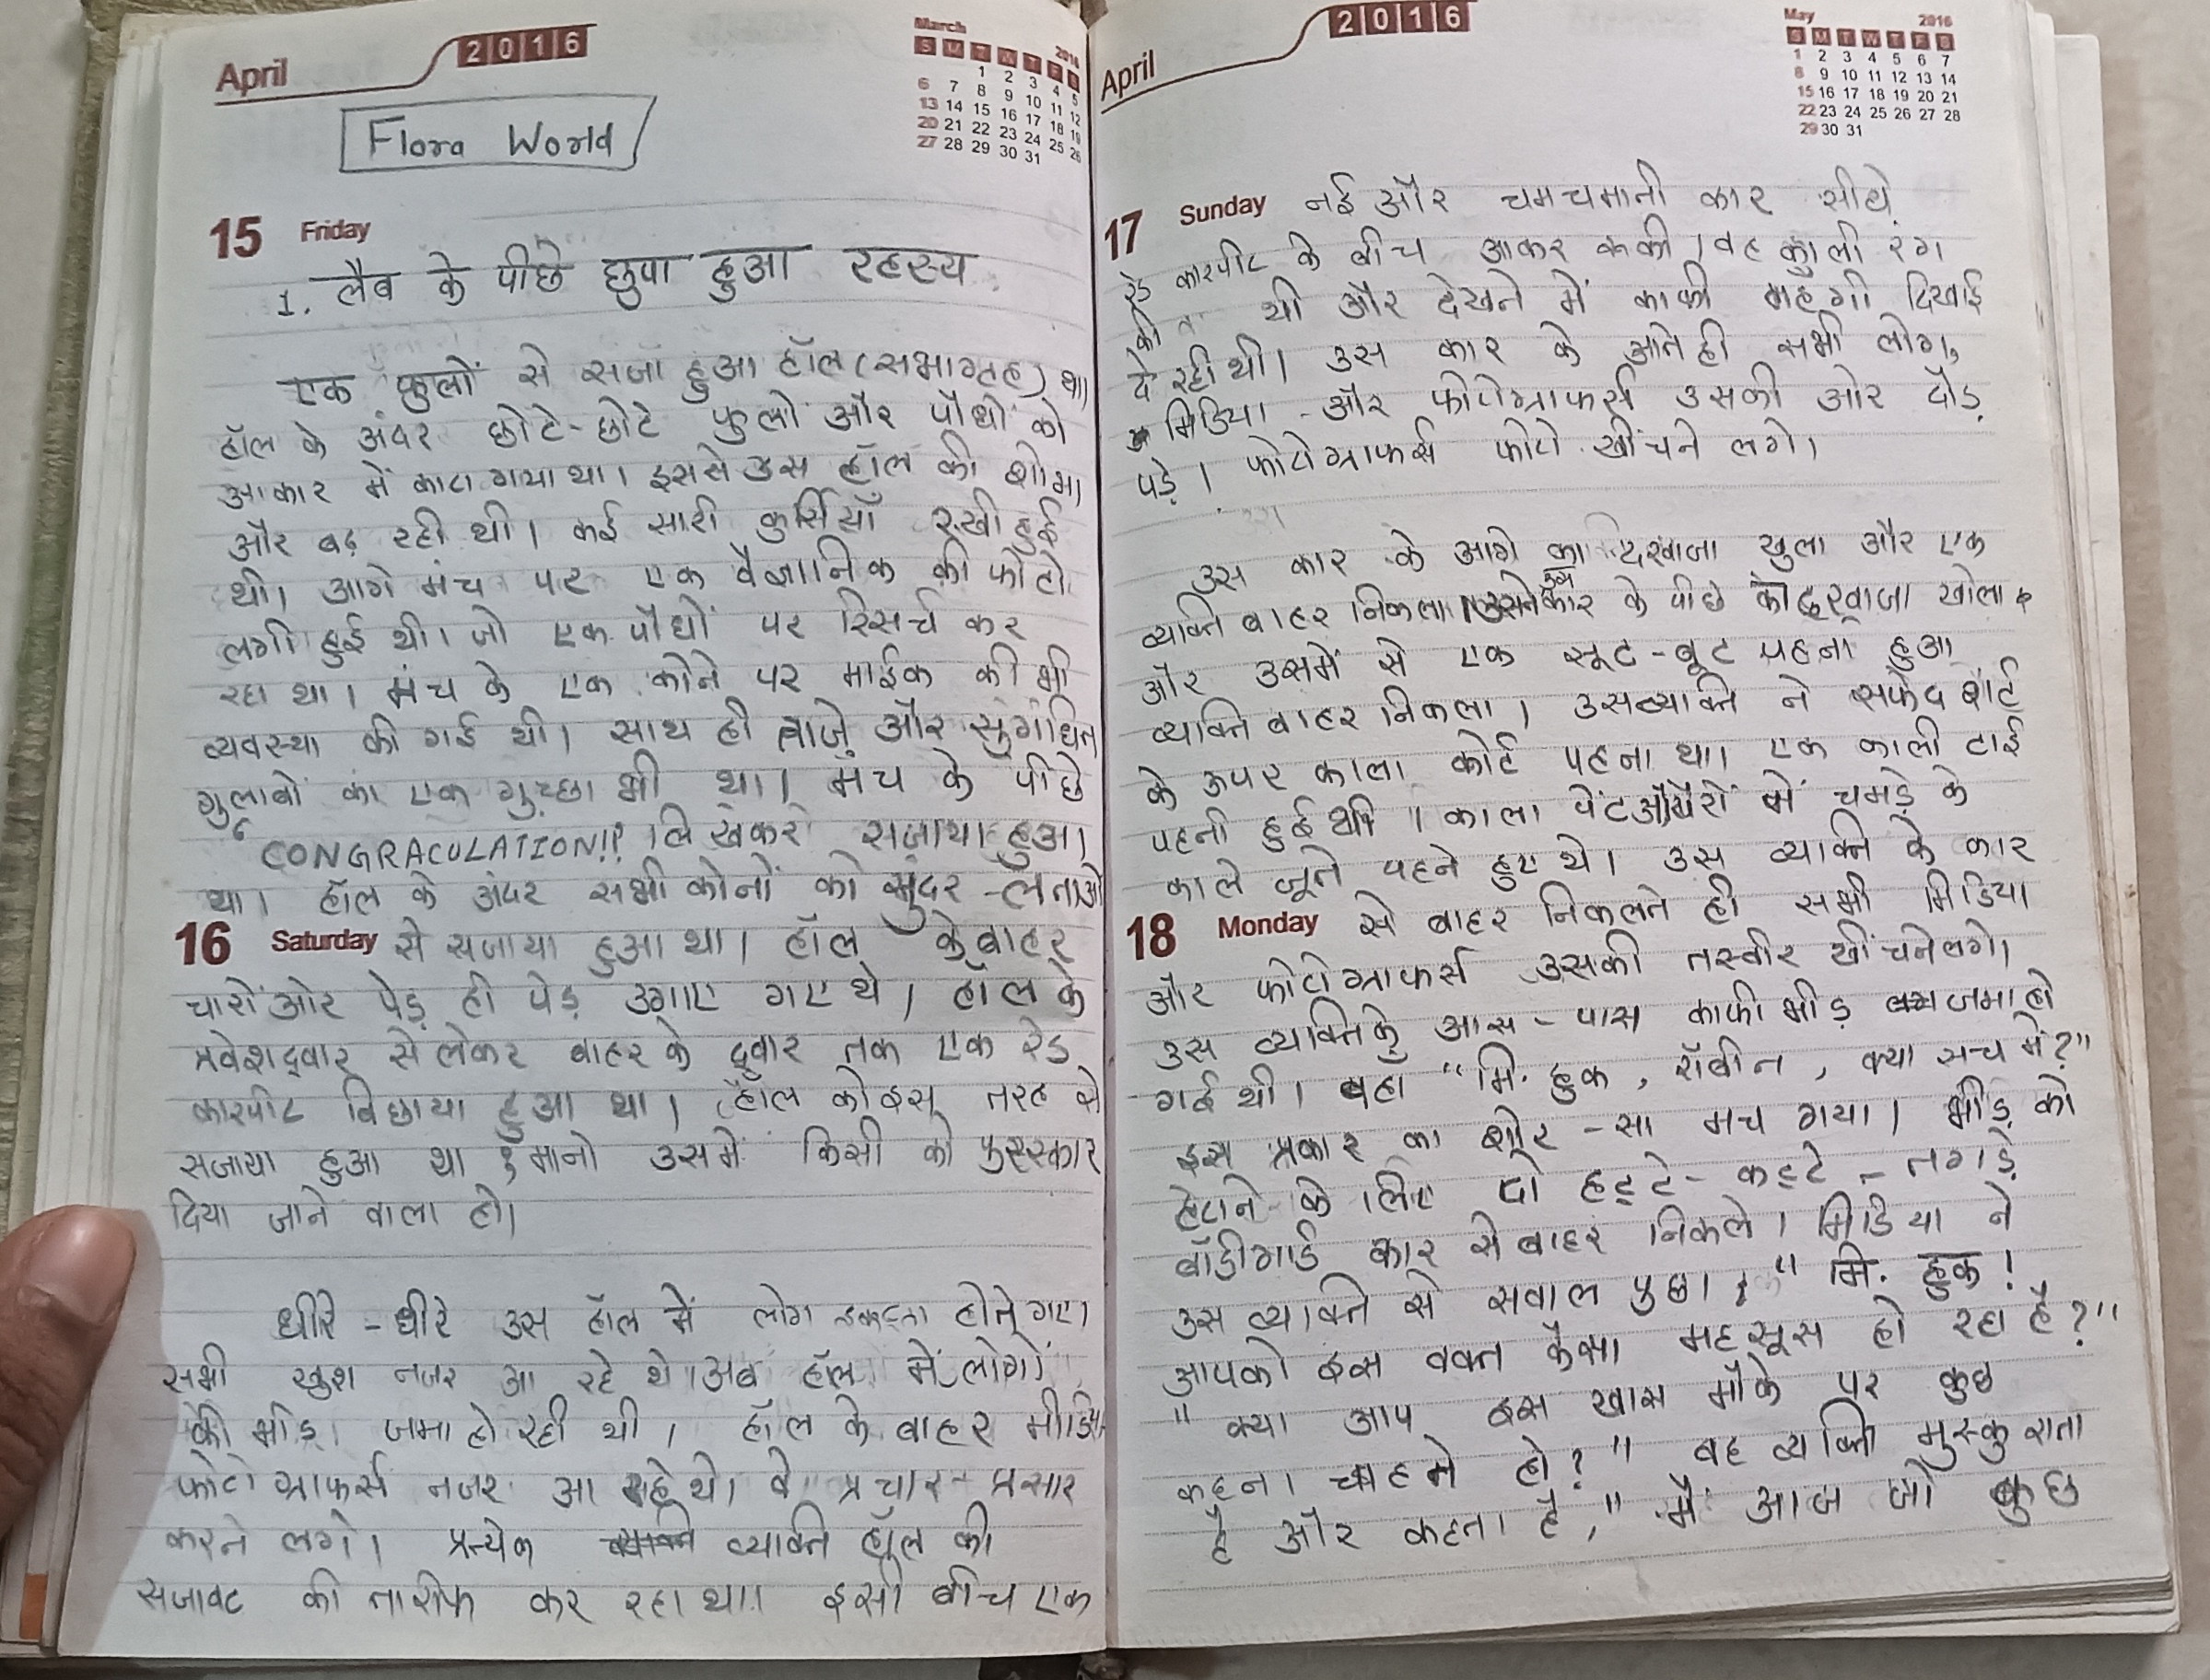 April 2016
March 2016
S M T W T F S
1 2 3 4 5
6 7 8 9 10 11 12
13 14 15 16 17 18 19
20 21 22 23 24 25 26
27 28 29 30 31
Flora World
15 Friday
1. लैब के पीछे छुपा हुआ रहस्य
एक फुलों से सजा हुआ हॉल (सभागृह) था।
हॉल के अंदर छोटे-छोटे फुलों और पौधों को
आकार में काटा गया था। इससे उस हॉल की शोभा
और बढ़ रही थी। कई सारी कुर्सियाँ रखी हुई
थी। आगे मंच पर एक वैज्ञानिक की फोटो
लगी हुई थी। जो एक पौधों पर रिसर्च कर
रहा था। मंच के एक कोने पर माईक की भी
व्यवस्था की गई थी। साथ ही ताजे और सुगंधित
गुलाबों का एक गुच्छा भी था। मंच के पीछे
"CONGRACULATION!! लिखकर सजाया हुआ
था। हॉल के अंदर सभी कोनों को सुंदर-लताओं
16 Saturday से सजाया हुआ था। हॉल के बाहर
चारों ओर पेड़ ही पेड़ उगाए गए थे। हॉल के
प्रवेशद्वार से लेकर बाहर के द्वार तक एक रेड
कारपीट बिछाया हुआ था। हॉल को इस तरह से
सजाया हुआ था मानो उसमें किसी को पुरस्कार
दिया जाने वाला हो।
धीरे-धीरे उस हॉल में लोग इकट्ठा होने गए।
सभी खुश नजर आ रहे थे। अब हॉल में लोगों
की भीड़ जमा हो रही थी। हॉल के बाहर मीडिया
फोटोग्राफर्स नजर आ रहे थे। वे प्रचार-प्रसार
करने लगे। प्रत्येक व्यक्ति हॉल की
सजावट की तारीफ कर रहा था। इसी बीच एक
April 2016
May 2016
S M T W T F S
1 2 3 4 5 6 7
8 9 10 11 12 13 14
15 16 17 18 19 20 21
22 23 24 25 26 27 28
29 30 31
17 Sunday नई और चमचमाती कार सीधे
रेड कारपीट के बीच आकर रूकी। वह काली रंग
की थी और देखने में काफी महगी दिखाई
दे रही थी। उस कार के आते ही सभी लोग,
मिडिया और फोटोग्राफर्स उसकी ओर दौड़
पड़े। फोटोग्राफर्स फोटो खींचने लगे।
उस कार के आगे का दरवाजा खुला और एक
व्यक्ति बाहर निकला। उसने उस कार के पीछे का दरवाजा खोला
और उसमें से एक सूट-बूट पहना हुआ
व्यक्ति बाहर निकला। उस व्यक्ति ने सफेद शर्ट
के ऊपर काला कोर्ट पहना था। एक काली टाई
पहनी हुई थी। काला पेंट और पैरों में चमड़े के
काले जूते पहने हुए थे। उस व्यक्ति के कार
18 Monday से बाहर निकलते ही सभी मिडिया
और फोटोग्राफर्स उसकी तस्वीर खींचने लगे।
उस व्यक्ति के आस-पास काफी भीड़ जमा हो
गई थी। वहा "मि. हुक, रॉबीन, क्या सच में?"
इस प्रकार का शोर-सा मच गया। भीड़ को
हटाने के लिए दो हट्टे-कट्टे-तगड़े
बॉडीगार्ड कार से बाहर निकले। मिडिया ने
उस व्यक्ति से सवाल पुछा, "मि. हुक!
आपको इस वक्त कैसा महसूस हो रहा है?"
"क्या आप इस खास मौके पर कुछ
कहना चाहते हो?" वह व्यक्ति मुस्कुराता
है और कहता है, "मैं आज जो कुछ